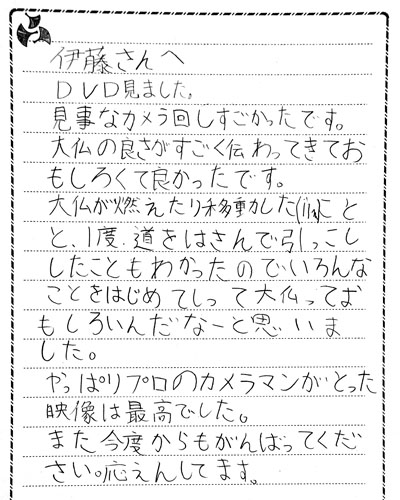 伊藤さんへ
DVD見ました。
見事なカメラ回しすごかったです。
大仏の良さがすごく伝わってきてお
もしろくて良かったです。
大仏が燃えたり移動したこと
と、1度道をはさんで引っこし
したこともわかったのでいろんな
ことをはじめてしって大仏ってお
もしろいんだなーと思いま
した。
やっぱりプロのカメラマンがとった
映像は最高でした。
また今度からもがんばってくだ
さい。応えんしてます。